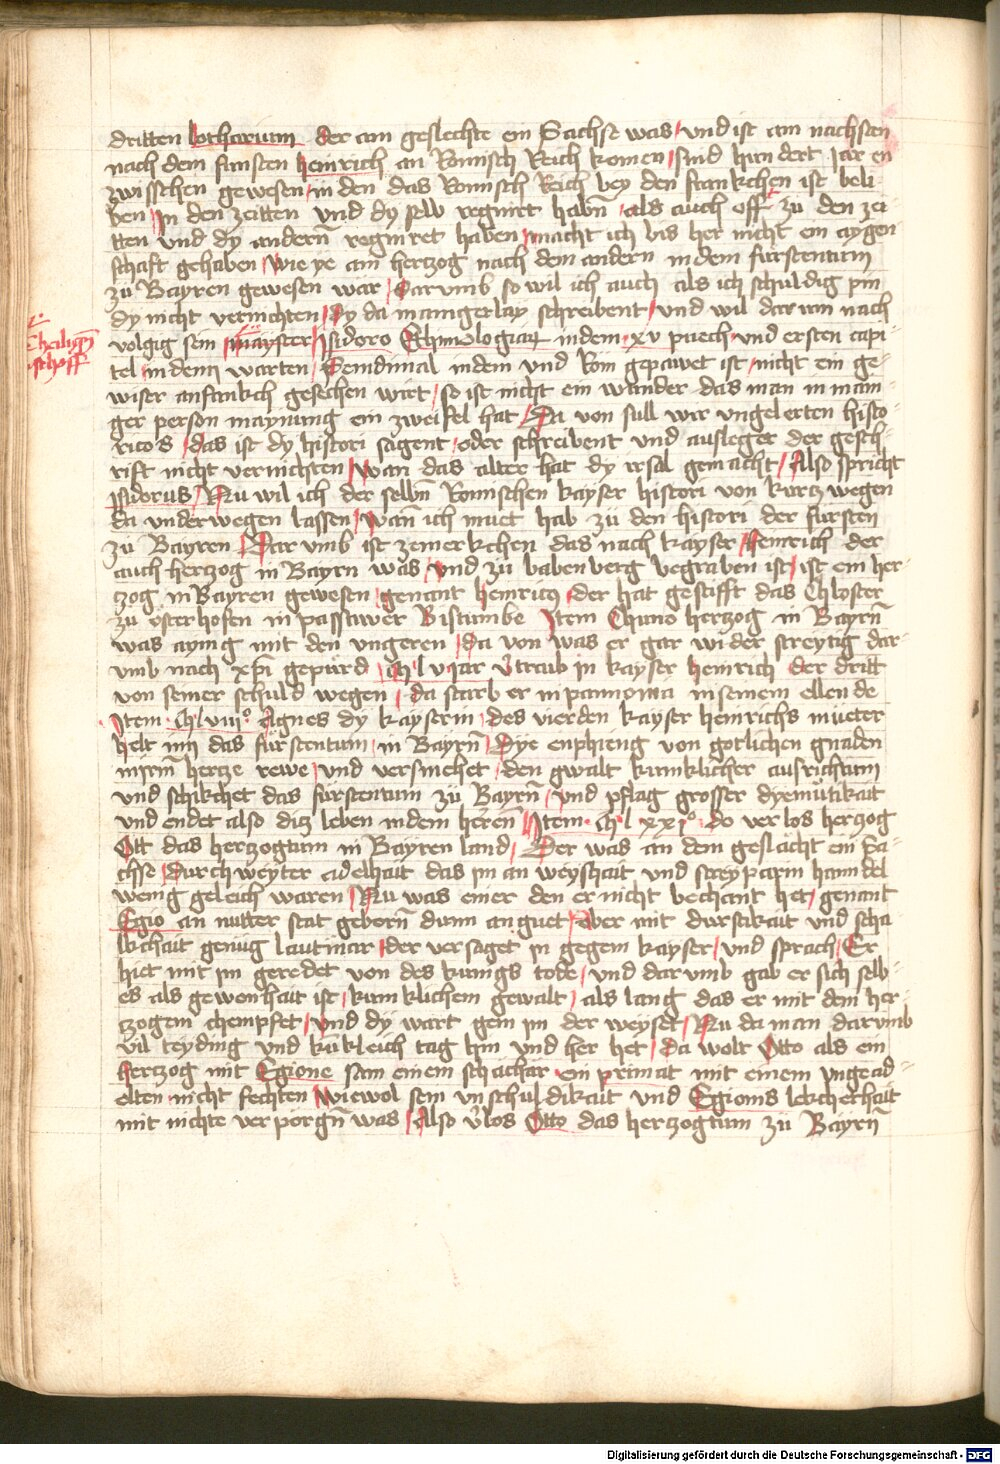 dritten lotharium der am geslechte ein Sachse was und ist am nachsten
nach dem funften heinrich an Romisch Reich komen sind hundert jar en
zwisschen gewesen in den das Romisch Reich bey den frankchen ist beli
ben in den zeitten und dy selb regniret habn als auch off zu den zei
tten und dy andern regniret haben macht ich bis her nicht ein aygen
schaft gehaben wie ye ain hertzog nach dem andern in dem furstentum
zu Bayren gewesen war Darumb so wil ich auch als ich schuldig pin
dy nicht vernichten dy da maingerlay schreibent und wil dar inn nach
volgig sein mayster Isidoro Ethimologiar in dem xv puech und ersten capi
tel in den warten Seindmal in dem und Rom gepawet ist nicht ein ge
wiser anfankch gesechen wirt so ist nicht ein wunder das man in main
ger person maynung ein zweifel hat Da von sull wir ungelerten histo
ricos das ist dy histori sagent oder schreibent und ausleger der gesch
rift nicht vernichten wan das alter hat dy irsal gemacht Also spricht
Isidorus Nu wil ich der selbn Romischen kayser histori von kurtz wegen
da underwegen lassen wan ich muet hab zu den histori der fursten
zu Bayren Dar umb ist zemerkchen das nach kayser heinrich der
auch hertzog in Bayrn was und zu babenberg begraben ist ist ein her
tzog in Bayren gewesen genant heinricus der hat gestifft das Chloster
zu osterhofen in passawer Bistumbe Item Chuno hertzog in Bayrn
was aynig mit den ungeren da von was er gar wider streytig dar
umb nach xpi gepurd Ml v jar vtraib in kayser heinrich der dritt
von seiner schuld wegen da starb er in pannonia in seinem ellende
Item Ml viii Agnes dy kayserin des vierden kayser heinrichs mueter
helt inn das furstentum in Bayrn Dye enphieng von gotlichen gnaden
inrm hertze rewe und versmehet den gwalt kuniklicher ausrichtum
und schikchet das furstentum zu Bayrn und pflag grosser dyemutikait
und endet also ditz leben in dem heren Item Ml xxi do verlos hertzog
Ott das hertzogtum in Bayren land Der was an dem geslacht ein Sa
chsse Durch weyter adelhait das im an weyshait und streyparm hanndel
wenig geleich waren Nu was einer den er nicht bechant het genant
Egio an mitter stat geborn dunn an guet Aber mit durstikait und scha
lkchait genug lautmar der versaget in gegem kayser und sprach Er
hiet mit im geredet von des kunigs tode und darumb gab er sich selb
es als gewonhait ist kuniklichem gewalt als lang das er mit dem her
tzogem chempfet und dy wart gem im der weyset Nu da man darumb
vil teyding und kukleich tag hin und her het da wolt Otto als ein
hertzog mit Egione sam einem schachar ein primat mit einem ungead
elten nicht fechten wiewol sein unschuldikait und Egionis lekcherhait
mit nichte verporgn was Also vlos Otto das hertzogtum zu Bayrn
Digitalisierung gefördert durch die Deutsche Forschungsgemeinschaft - DFG